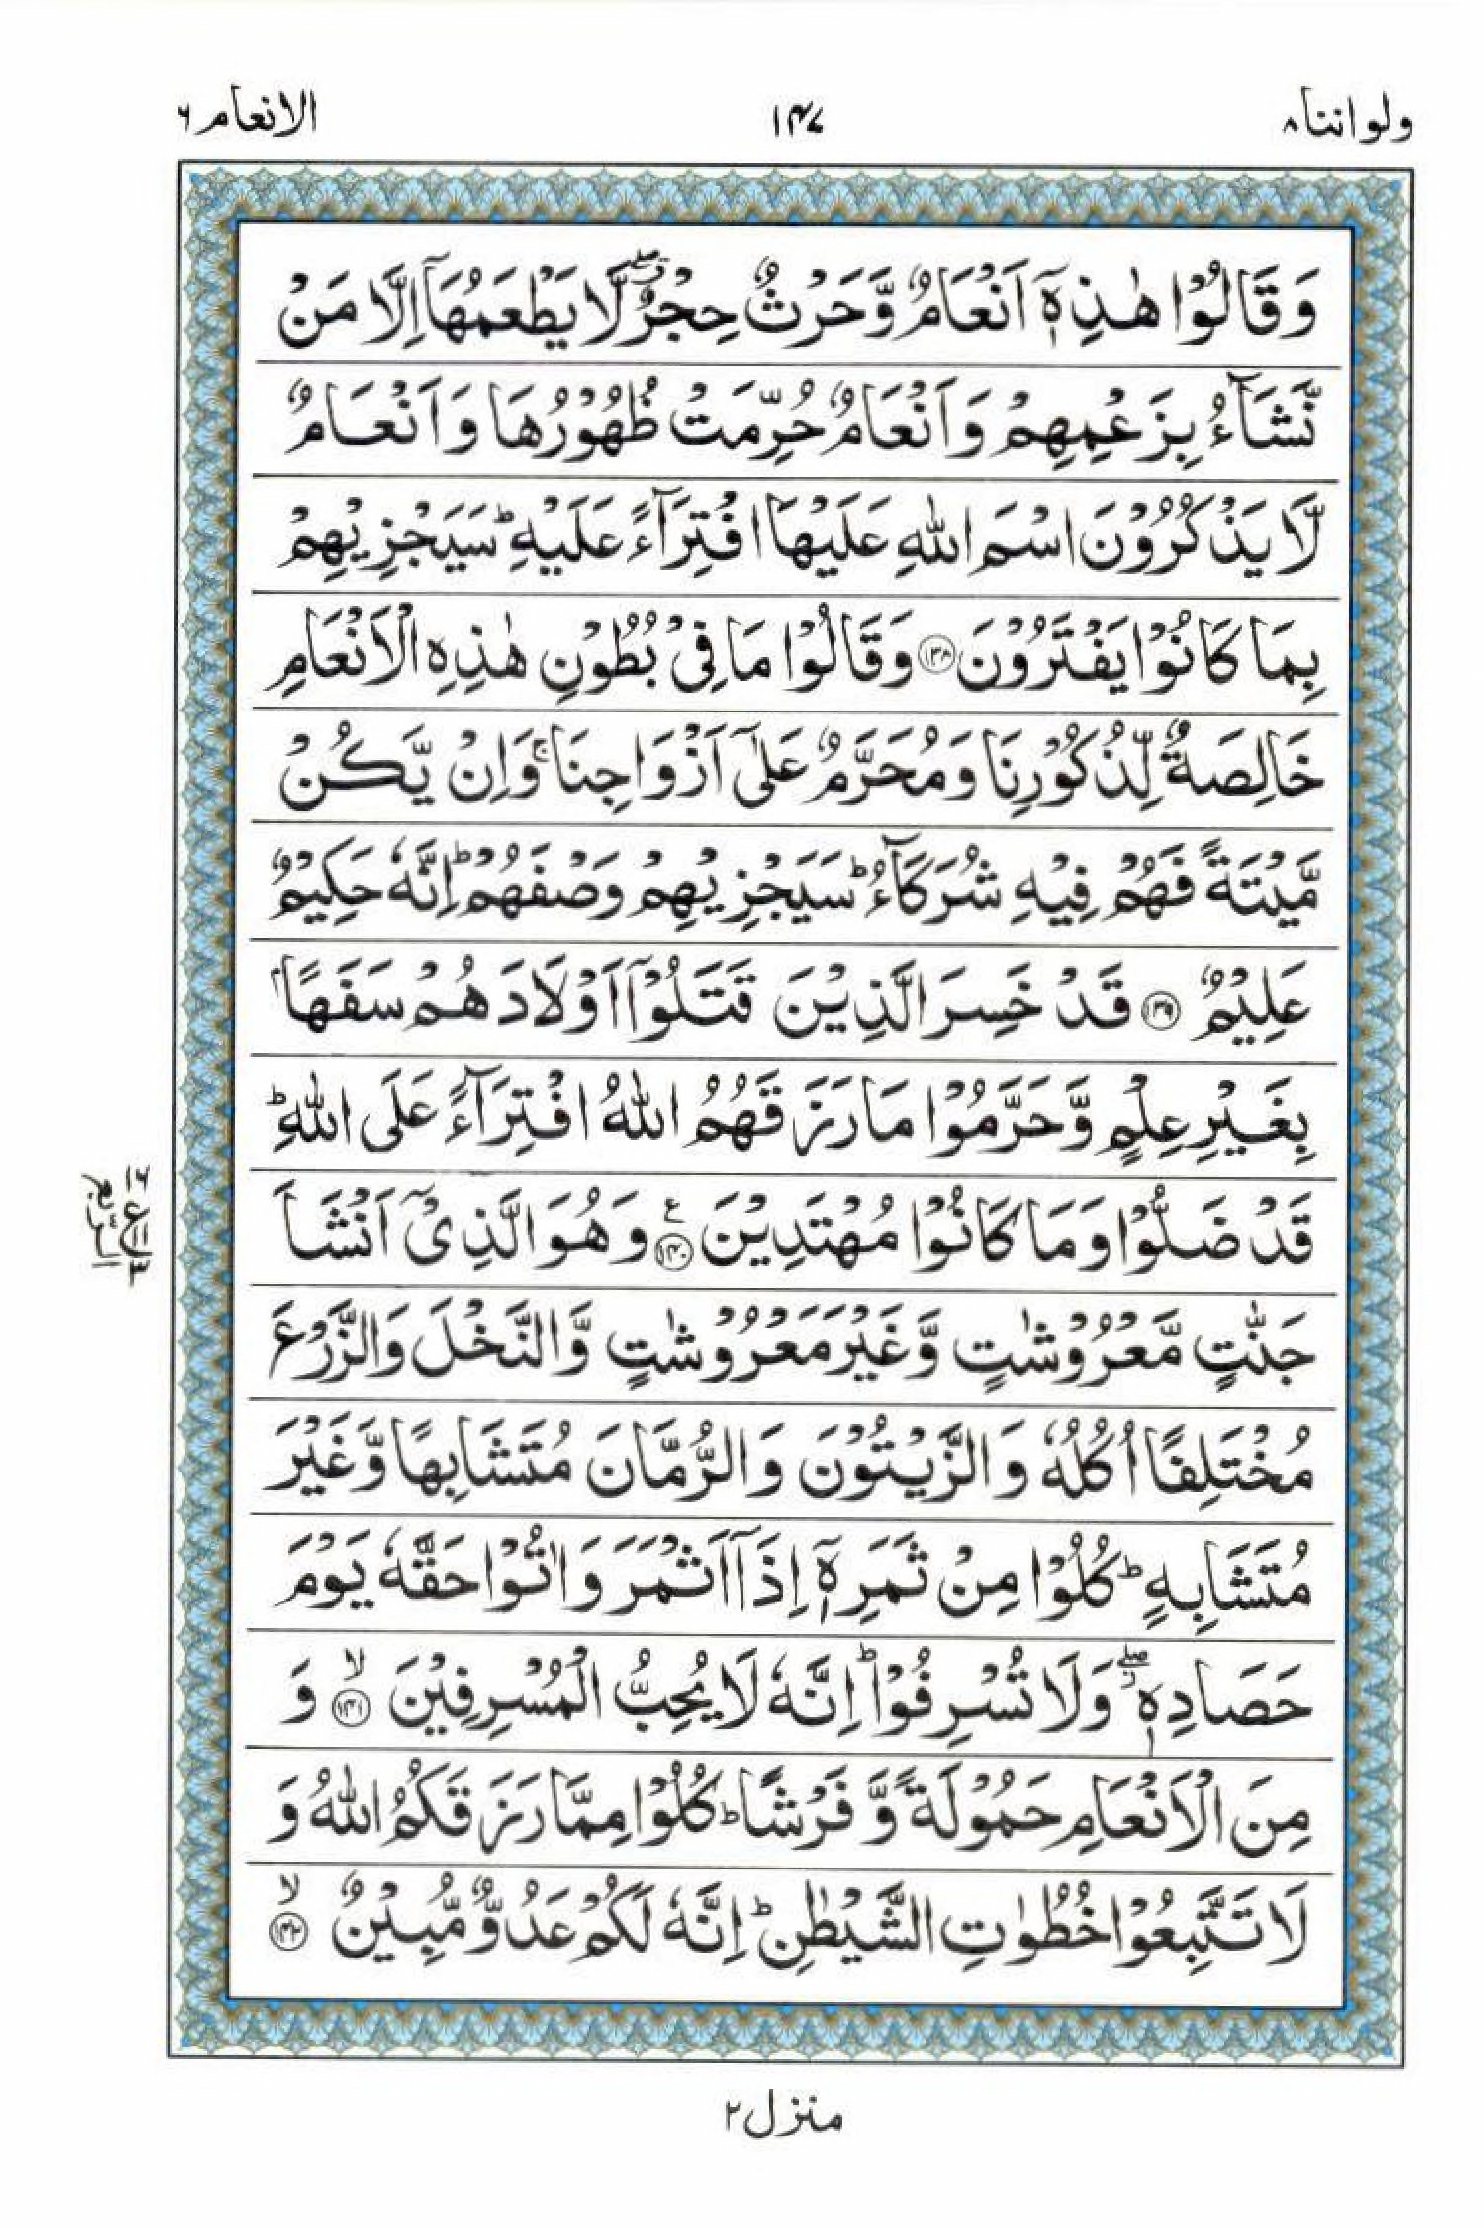 ولواننا ٨
١٤٧
الانعام ٦
وَقَالُوْا هٰذِهٖۤ اَنْعَامٌ وَّحَرْثٌ حِجْرٌ ۖۗ لَّا يَطْعَمُهَاۤ اِلَّا مَنْ
نَّشَآءُ بِزَعْمِهِمْ وَاَنْعَامٌ حُرِّمَتْ ظُهُوْرُهَا وَاَنْعَامٌ
لَّا يَذْكُرُوْنَ اسْمَ اللّٰهِ عَلَيْهَا افْتِرَآءً عَلَيْهِ ؕ سَيَجْزِيْهِمْ
بِمَا كَانُوْا يَفْتَرُوْنَ ﴿١٣٨﴾ وَقَالُوْا مَا فِيْ بُطُوْنِ هٰذِهِ الْاَنْعَامِ
خَالِصَةٌ لِّذُكُوْرِنَا وَمُحَرَّمٌ عَلٰۤى اَزْوَاجِنَا ۚ وَاِنْ يَّكُنْ
مَّيْتَةً فَهُمْ فِيْهِ شُرَكَآءُ ؕ سَيَجْزِيْهِمْ وَصْفَهُمْ ؕ اِنَّهٗ حَكِيْمٌ
عَلِيْمٌ ﴿١٣٩﴾ قَدْ خَسِرَ الَّذِيْنَ قَتَلُوْۤا اَوْلَادَهُمْ سَفَهًاۢ
بِغَيْرِ عِلْمٍ وَّحَرَّمُوْا مَا رَزَقَهُمُ اللّٰهُ افْتِرَآءً عَلَى اللّٰهِ ؕ
قَدْ ضَلُّوْا وَمَا كَانُوْا مُهْتَدِيْنَ ﴿١٤٠﴾ ع وَهُوَ الَّذِيْۤ اَنْشَاَ
جَنّٰتٍ مَّعْرُوْشٰتٍ وَّغَيْرَ مَعْرُوْشٰتٍ وَّالنَّخْلَ وَالزَّرْعَ
مُخْتَلِفًا اُكُلُهٗ وَالزَّيْتُوْنَ وَالرُّمَّانَ مُتَشَابِهًا وَّغَيْرَ
مُتَشَابِهٍ ؕ كُلُوْا مِنْ ثَمَرِهٖۤ اِذَاۤ اَثْمَرَ وَاٰتُوْا حَقَّهٗ يَوْمَ
حَصَادِهٖ ۖؗ وَلَا تُسْرِفُوْا ؕ اِنَّهٗ لَا يُحِبُّ الْمُسْرِفِيْنَ ﴿١٤١﴾ ۙ وَ
مِنَ الْاَنْعَامِ حَمُوْلَةً وَّفَرْشًا ؕ كُلُوْا مِمَّا رَزَقَكُمُ اللّٰهُ وَ
لَا تَتَّبِعُوْا خُطُوٰتِ الشَّيْطٰنِ ؕ اِنَّهٗ لَكُمْ عَدُوٌّ مُّبِيْنٌ ﴿١٤٢﴾ ۙ
الربع
منزل ٢